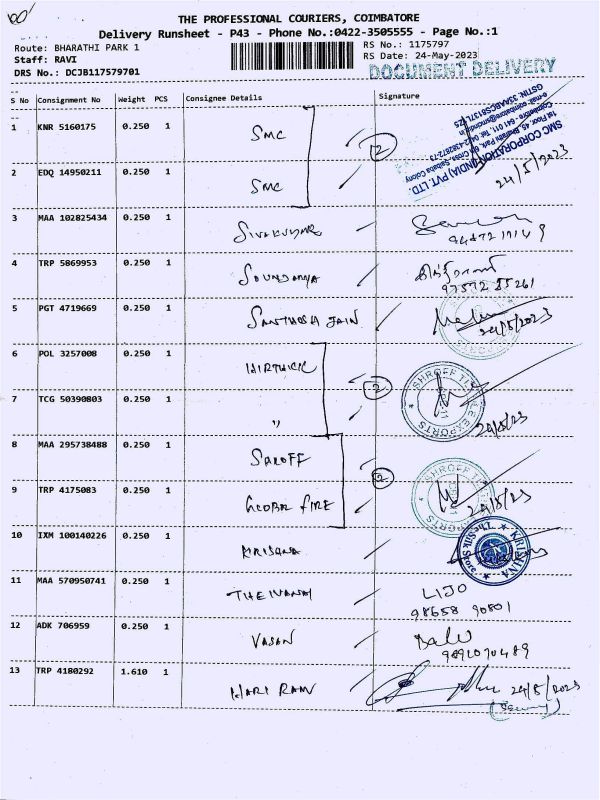 THE PROFESSIONAL COURIERS, COIMBATORE
Delivery Runsheet - P43 - Phone No.:0422-3505555 - Page No.:1
Route: BHARATHI PARK 1
RS No.: 1175797
Staff: RAVI
RS Date: 24-May-2023
DRS No.: DCJB117579701
DOCUMENT DELIVERY
S No Consignment No Weight PCS Consignee Details Signature
1 KNR 5160175 0.250 1 SMC 2
SMC CORPORATION (INDIA) PVT. LTD.
2 EDQ 14950211 0.250 1 SMC 24/5/2023
3 MAA 102825434 0.250 1 SIVAKUMAR
4 TRP 5869953 0.250 1 SOUNDARYA
5 PGT 4719669 0.250 1 SANTHOSH JAIN 24/5/2023
6 POL 3257008 0.250 1 HIRTHICK
7 TCG 50390803 0.250 1 " 2 24/5/23
8 MAA 295738488 0.250 1 SAROFF
9 TRP 4175083 0.250 1 GLOBAL FIRE 2 24/5/23
10 IXM 100140226 0.250 1 KRISHNA
KRISHNA
The Silk Store
11 MAA 570950741 0.250 1 THEIVANAI LIJO
98658 90801
12 ADK 706959 0.250 1 VASAN Balu
13 TRP 4180292 1.610 1 HARI RAM 24/5/2023